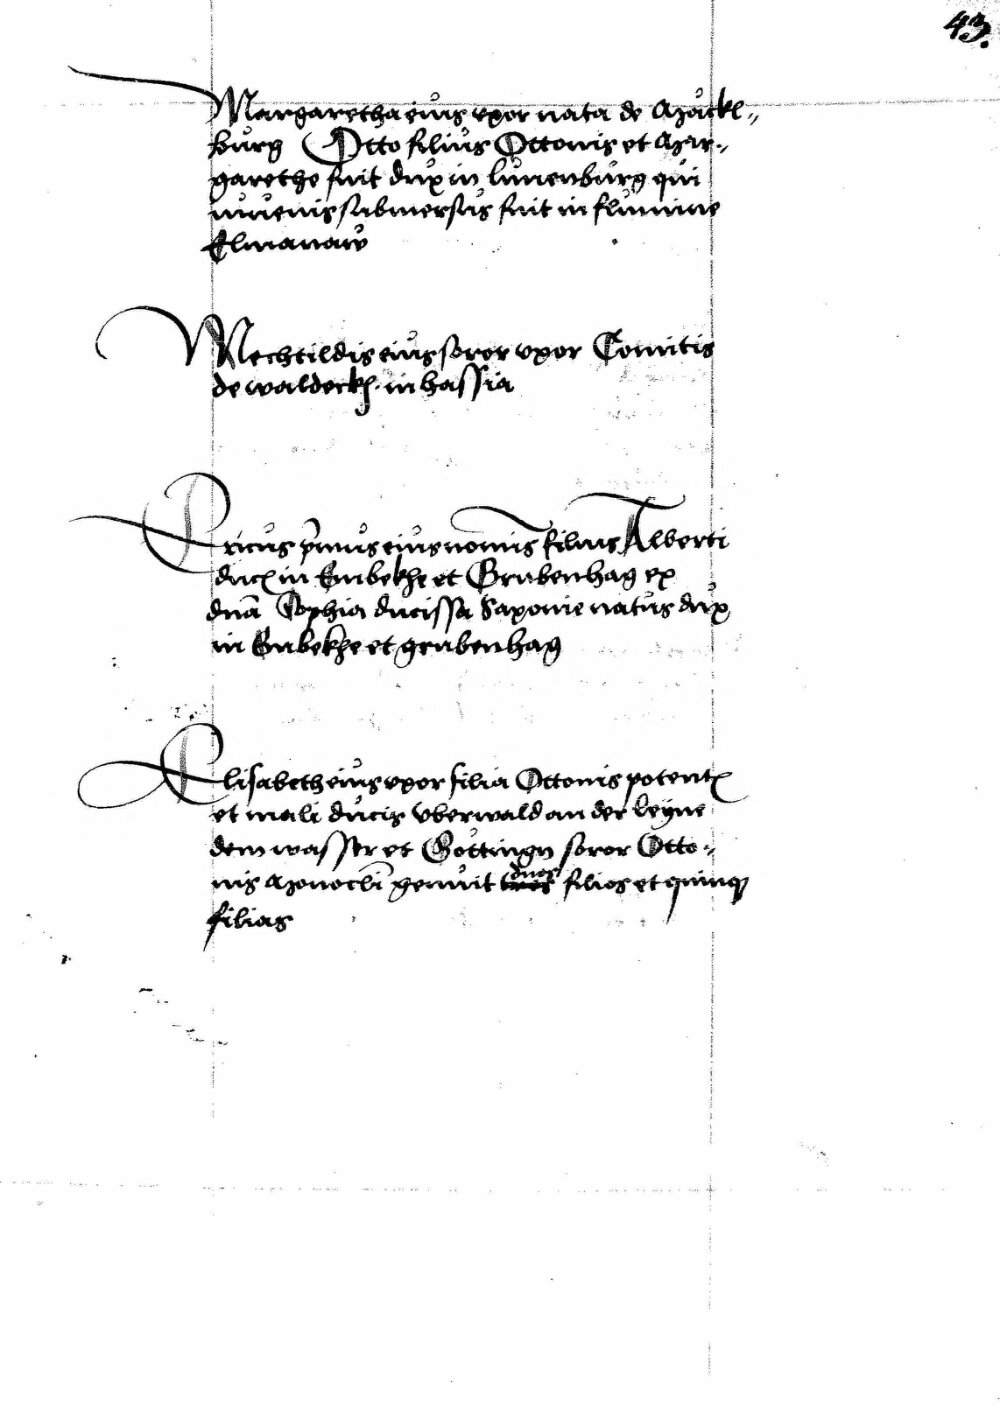 43.
Margaretha eius uxor nata de Meckel=
burg Otto filius Ottonis et Mar=
garethe fuit dux in Lunenburg qui
iuvenis submersus fuit in flumine
Elmanaw
Mechtildis eius soror uxor Comitis
de waldeckh in hassia
Ericus prmus eius nominis filius Alberti
ducis in Einbekhe et Grubenhag ex
dna Sophia ducissa Saxonie natus dux
in Einbekhe et grubenhag
Elisabeth eius uxor filia Ottonis potentis
et mali ducis vberwald an der leyne
dem wasser et Gottingn soror Otto=
nis Monocli genuit tres duos filios et quinqe
filias